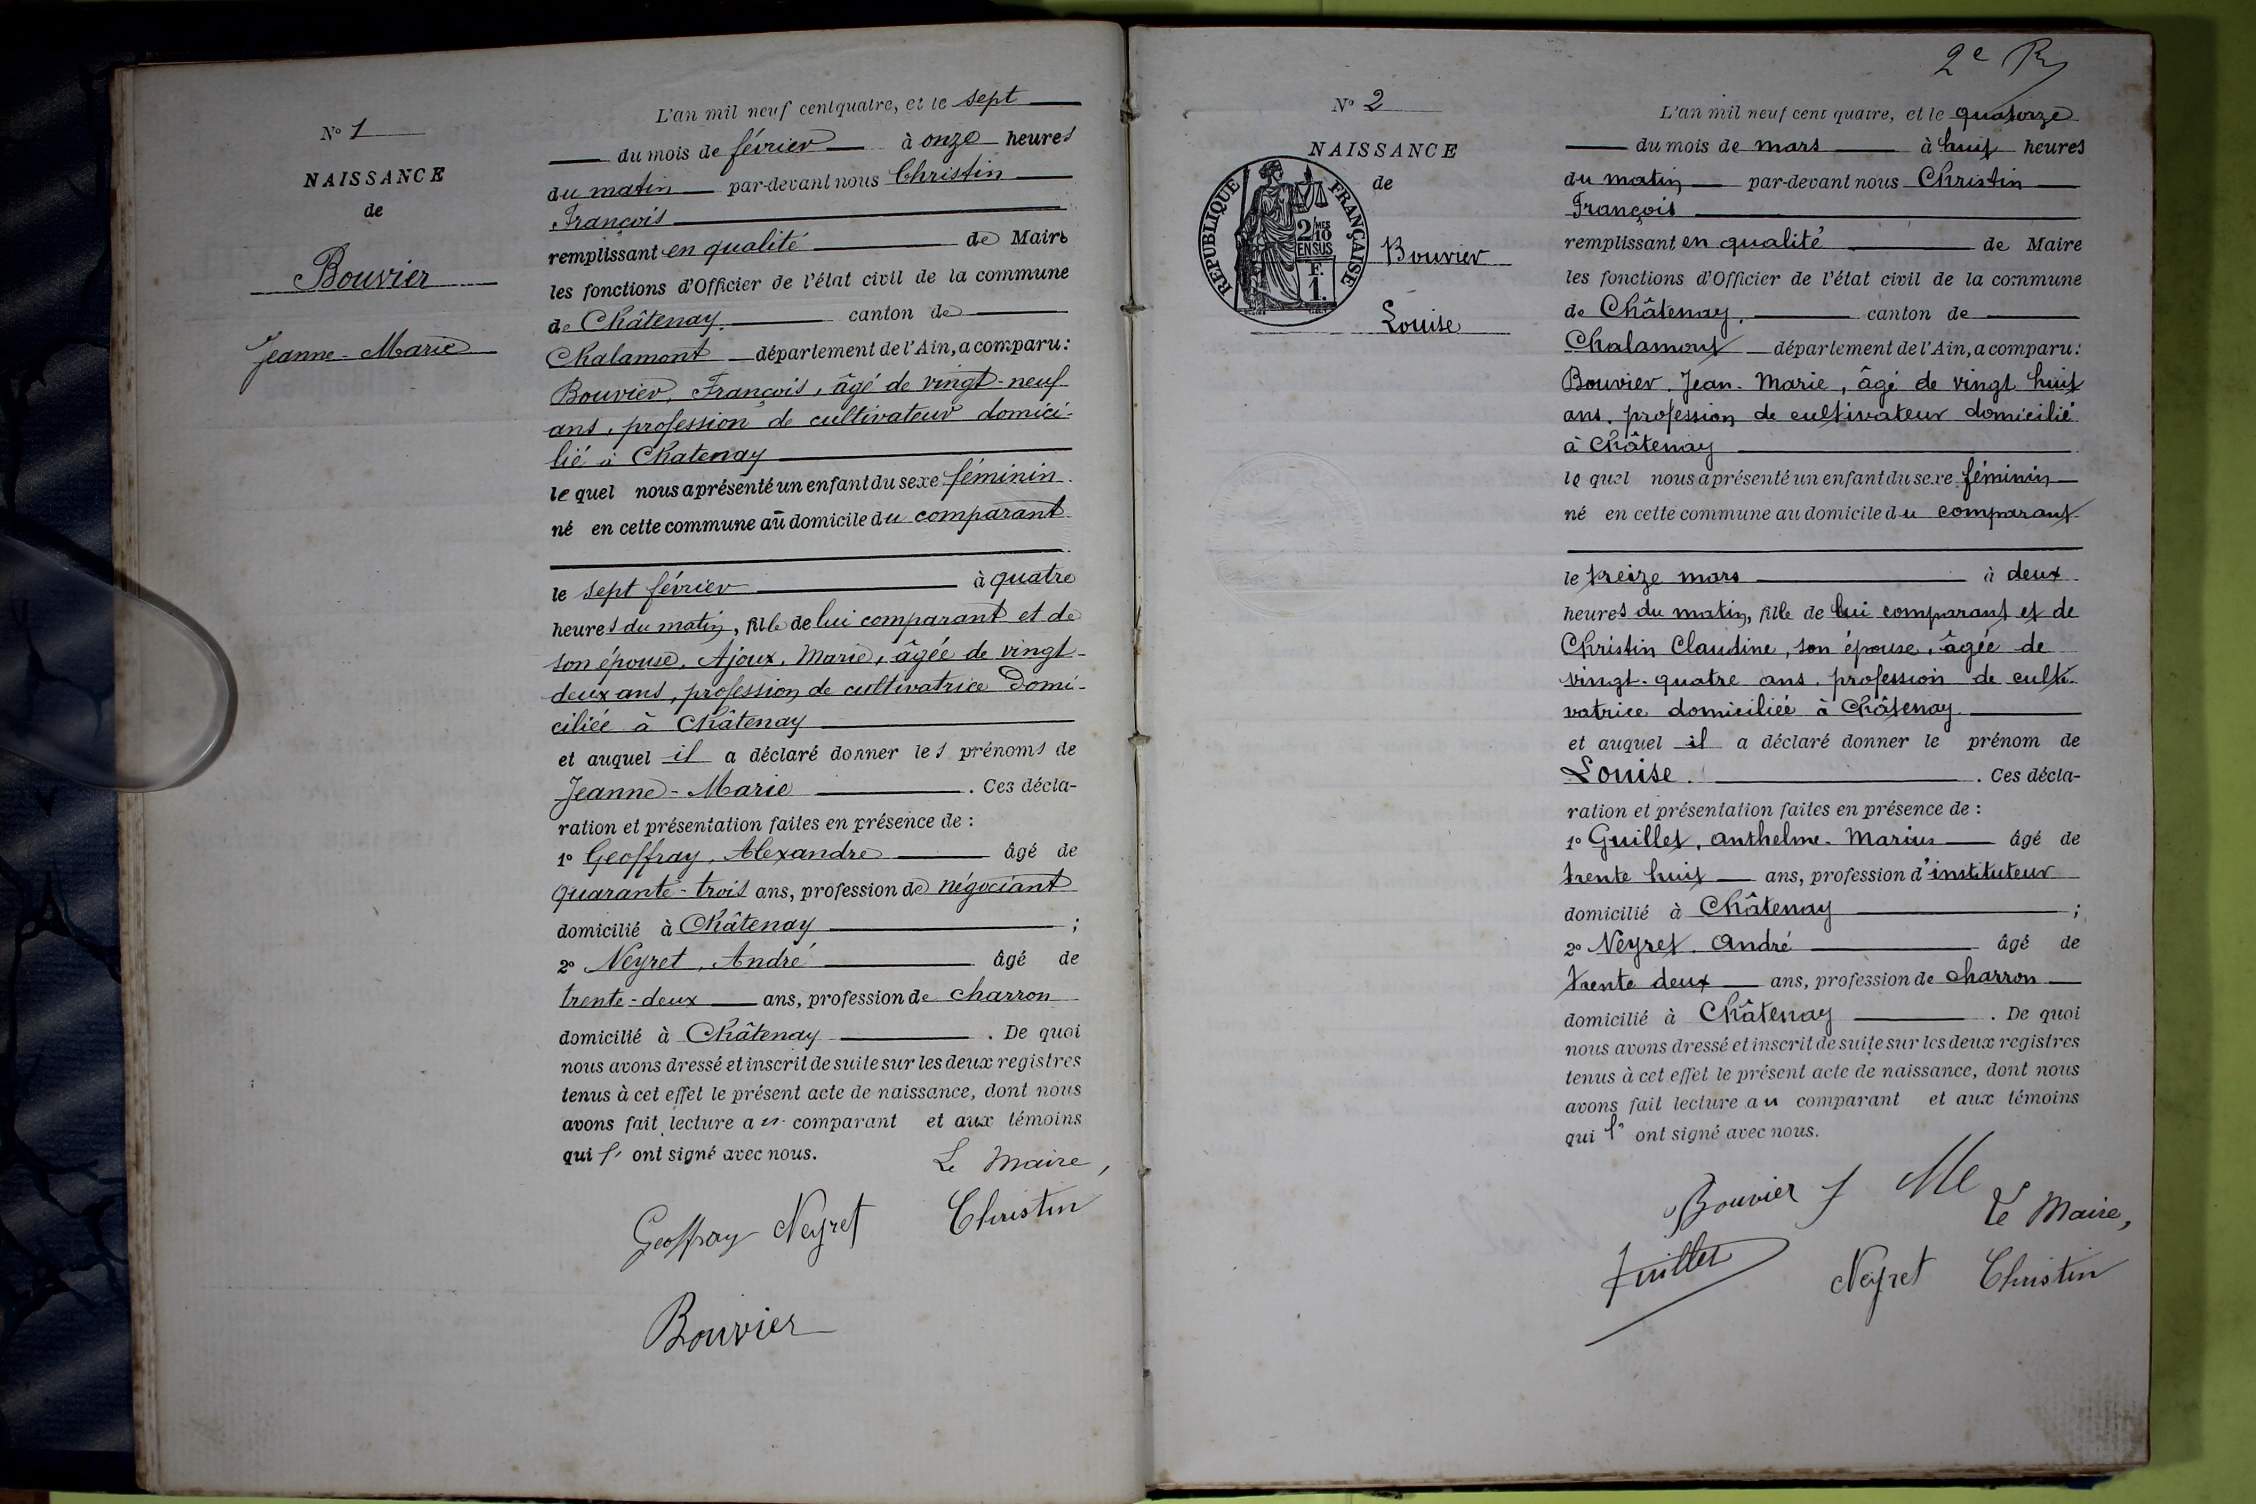 N° 1
NAISSANCE
de
Bouvier
Jeanne-Marie
L'an mil neuf cent quatre, et le sept
du mois de février à onze heures
du matin par-devant nous Christin
François
remplissant en qualité de Maire
les fonctions d'Officier de l'état civil de la commune
de Châtenay, canton de
Chalamont département de l'Ain, a comparu :
Bouvier, François, âgé de vingt-neuf
ans, profession de cultivateur domici-
lié à Chatenay
lequel nous a présenté un enfant du sexe féminin
né en cette commune au domicile du comparant
le sept février à quatre
heures du matin, fille de lui comparant et de
son épouse, Ajoux, Marie, âgée de vingt-
deux ans, profession de cultivatrice domi-
ciliée à Châtenay
et auquel il a déclaré donner les prénoms de
Jeanne-Marie. Ces décla-
ration et présentation faites en présence de :
1° Geoffray, Alexandre âgé de
quarante-trois ans, profession de négociant
domicilié à Châtenay ;
2° Neyret, André âgé de
trente-deux ans, profession de charron
domicilié à Châtenay. De quoi
nous avons dressé et inscrit de suite sur les deux registres
tenus à cet effet le présent acte de naissance, dont nous
avons fait lecture au comparant et aux témoins
qui l' ont signé avec nous.
Le Maire,
Geoffray Neyret Christin
Bouvier
2e
N° 2
NAISSANCE
de
RÉPUBLIQUE FRANÇAISE
2/10 MES
EN SUS
F.
1.
Bouvier
Louise
L'an mil neuf cent quatre, et le quatorze
du mois de mars à huit heures
du matin par-devant nous Christin
François
remplissant en qualité de Maire
les fonctions d'Officier de l'état civil de la commune
de Châtenay, canton de
Chalamont département de l'Ain, a comparu :
Bouvier, Jean-Marie, âgé de vingt huit
ans, profession de cultivateur domicilié
à Châtenay
lequel nous a présenté un enfant du sexe féminin
né en cette commune au domicile du comparant
le treize mars à deux
heures du matin, fille de lui comparant et de
Christin Claudine, son épouse, âgée de
vingt-quatre ans, profession de culti-
vatrice domiciliée à Châtenay.
et auquel il a déclaré donner le prénom de
Louise. Ces décla-
ration et présentation faites en présence de :
1° Guillet, Anthelme-Marius âgé de
trente huit ans, profession d'instituteur
domicilié à Châtenay ;
2° Neyret, André âgé de
trente deux ans, profession de charron
domicilié à Châtenay. De quoi
nous avons dressé et inscrit de suite sur les deux registres
tenus à cet effet le présent acte de naissance, dont nous
avons fait lecture au comparant et aux témoins
qui l' ont signé avec nous.
Bouvier
Le Maire,
Guillet Neyret Christin